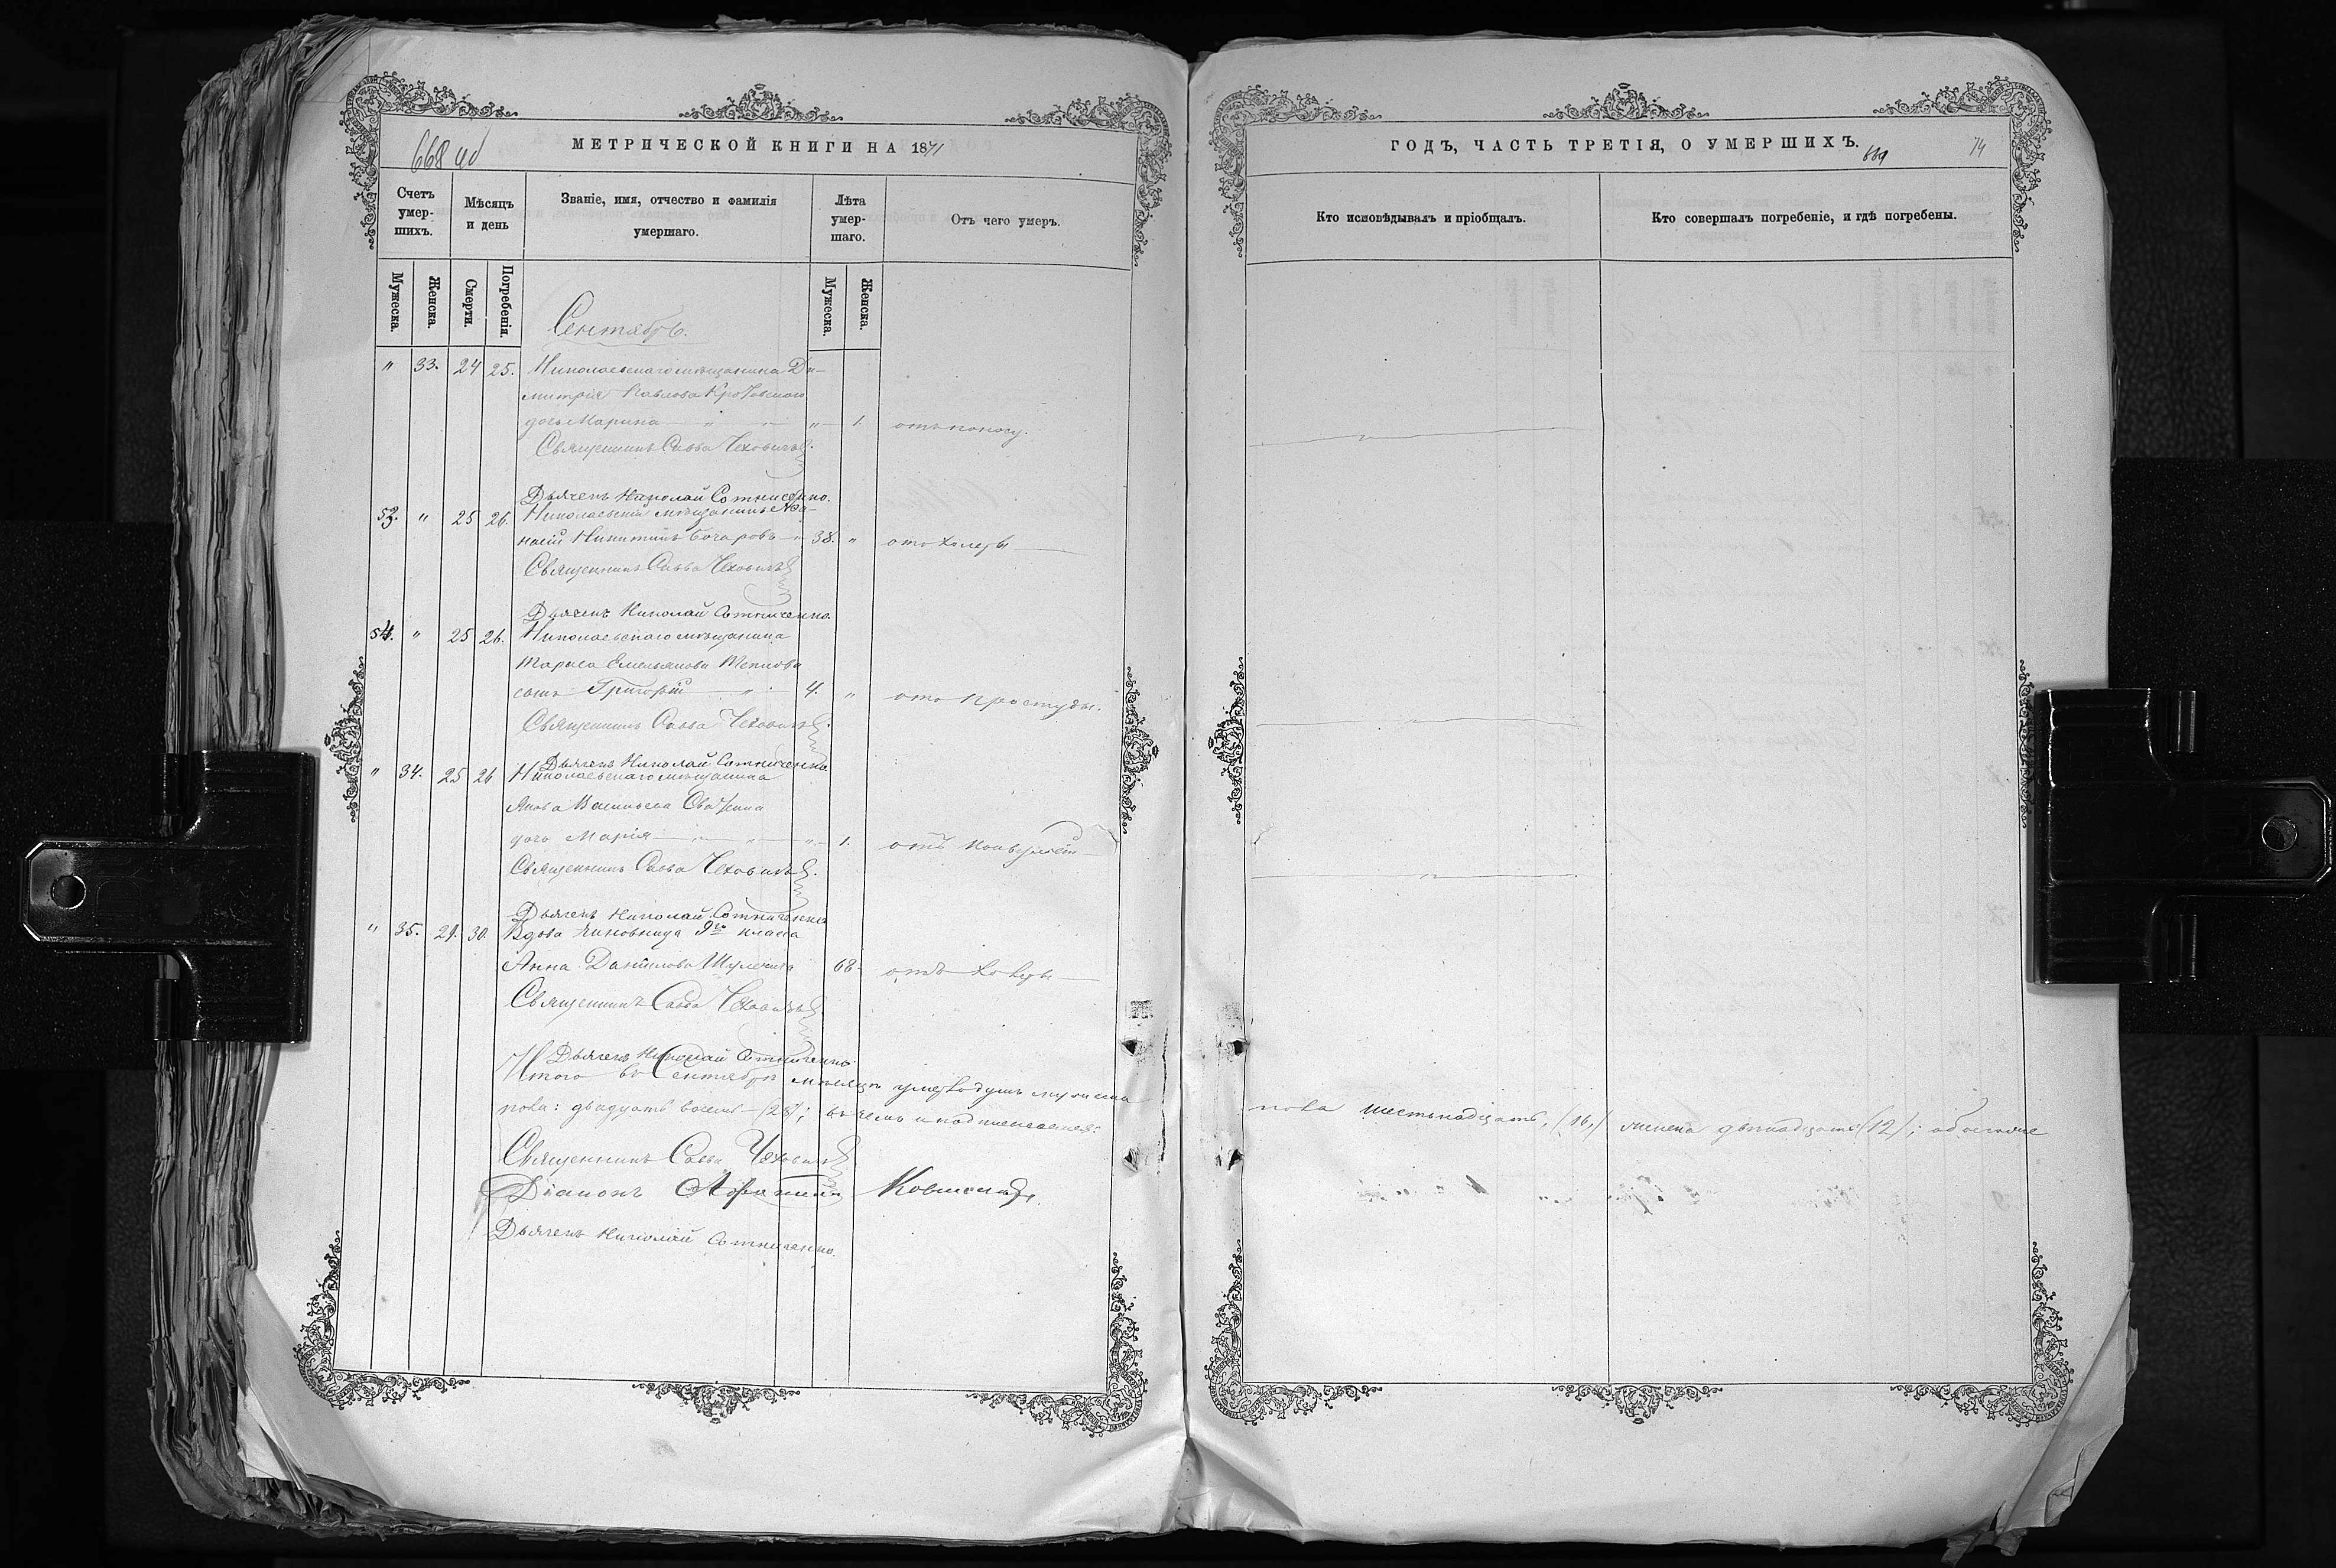 МЕТРИЧЕСКОЙ КНИГИ НА 1871
668
Счетъ умер-шихъ.
Мѣсяцъ и день
Званіе, имя, отчество и фамилія умершаго.
Лѣта умер-шаго.
Отъ чего умеръ.
Мужеска.
Женска.
Смерти.
Погребенія.
Мужеска.
Женска.
Сентябрь.
" 33. 24 25. Николаевскаго мѣщанина Ди-
митрія Павлова
дочь Марина " " " 1. отъ поносу.
Священникъ Савва Чеховичъ.
Дьячекъ Николай Сотниченко.
53. " 25 26. Николаевскій мѣщанинъ
Никитинъ Бочаровъ 38. " отъ холеры
Священникъ Савва Чеховичъ
Дьячекъ Николай Сотниченко.
54. " 25 26. Николаевскаго мѣщанина
Тараса Емельянова
сынъ Григорій " 4. " отъ простуды.
Священникъ Савва Чеховичъ.
Дьячекъ Николай Сотниченко
" 34. 25 26 Николаевскаго мѣщанина
Якова Васильева
дочь Марія " " " 1. отъ
Священникъ Савва Чеховичъ.
Дьячекъ Николай Сотниченко
" 35. 29. 30. Вдова чиновница 9го класса
Анна Данилова 68. отъ холеры
Священникъ Савва Чеховичъ
Дьячекъ Николай Сотниченко
Итого въ Сентябрѣ мѣсяцѣ умерло душъ мужеска
пола: двадцать восемь (28); въ чемъ и подписались:
Священникъ Савва Чеховичъ
Діаконъ
Дьячекъ Николай Сотниченко.
ГОДЪ, ЧАСТЬ ТРЕТІЯ, О УМЕРШИХЪ.
669
74
Кто исповѣдывалъ и пріобщалъ.
Кто совершалъ погребеніе, и гдѣ погребены.
пола шестьнадцать, (16,) женска двѣнадцать (12);